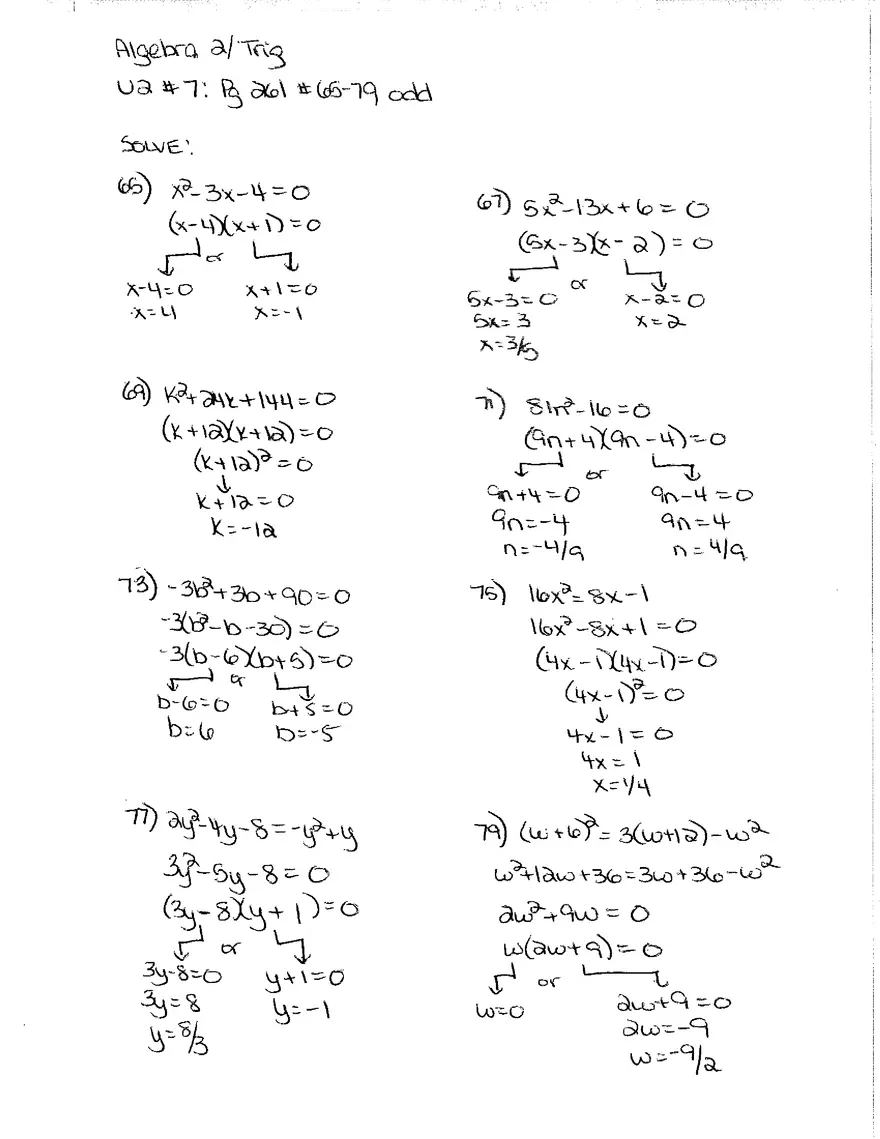 Algebra 2/Trig
U2 #7: Pg 261 #65-79 odd
SOLVE:
65) x²-3x-4=0
(x-4)(x+1)=0
or
x-4=0 x+1=0
x=4 x=-1
67) 5x²-13x+6=0
(5x-3)(x-2)=0
or
5x-3=0 x-2=0
5x=3 x=2
x=3/5
69) k²+24k+144=0
(k+12)(k+12)=0
(k+12)²=0
k+12=0
k=-12
71) 81n²-16=0
(9n+4)(9n-4)=0
or
9n+4=0 9n-4=0
9n=-4 9n=4
n=-4/9 n=4/9
73) -3b²+3b+90=0
-3(b²-b-30)=0
-3(b-6)(b+5)=0
or
b-6=0 b+5=0
b=6 b=-5
75) 16x²=8x-1
16x²-8x+1=0
(4x-1)(4x-1)=0
(4x-1)²=0
4x-1=0
4x=1
x=1/4
77) 2y²-4y-8=-y²+y
3y²-5y-8=0
(3y-8)(y+1)=0
or
3y-8=0 y+1=0
3y=8 y=-1
y=8/3
79) (w+6)²=3(w+12)-w²
w²+12w+36=3w+36-w²
2w²+9w=0
w(2w+9)=0
or
w=0 2w+9=0
2w=-9
w=-9/2